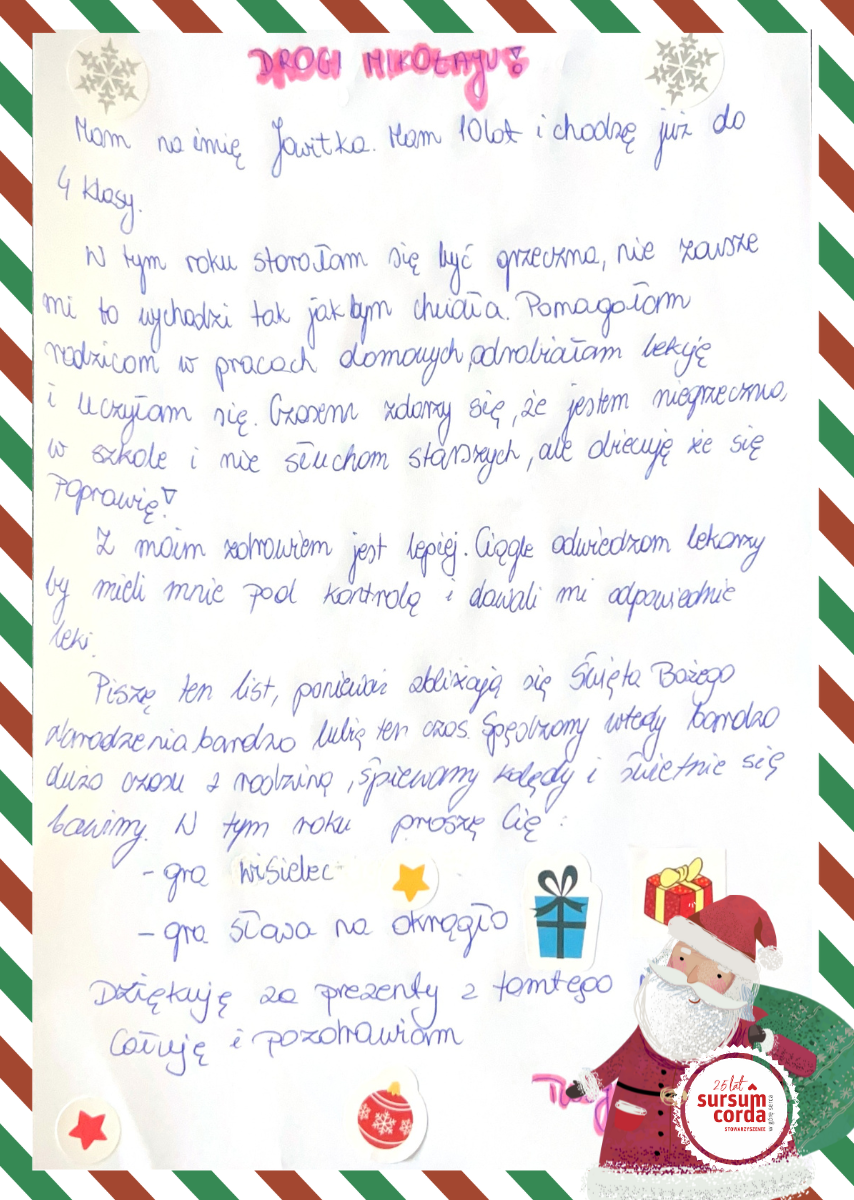 DROGI MIKOŁAJU!
Mam na imię Jawitka. Mam 10 lat i chodzę już do
4 klasy.
W tym roku starałam się być grzeczna, nie zawsze
mi to wychodzi tak jakbym chciała. Pomagałam
rodzicom w pracach domowych, odrabiałam lekcję
i uczyłam się. Czasem zdarzy się, że jestem niegrzeczna,
w szkole i nie słucham starszych, ale obiecuję że się
Poprawię!
Z moim zdrowiem jest lepiej. Ciągle odwiedzam lekarzy
by mieli mnie pod kontrolą i dawali mi odpowiednie
leki.
Piszę ten list, ponieważ zbliżają się Święta Bożego
Narodzenia bardzo lubię ten czas. Spędzamy wtedy bardzo
dużo czasu z rodziną, śpiewamy kolędy i świetnie się
bawimy. W tym roku proszę Cię:
- gra wisielec
- gra słowa na okrągło
Dziękuję za prezenty z tamtego
Całuję i pozdrawiam
26 lat
sursum
corda
STOWARZYSZENIE
w górę serca